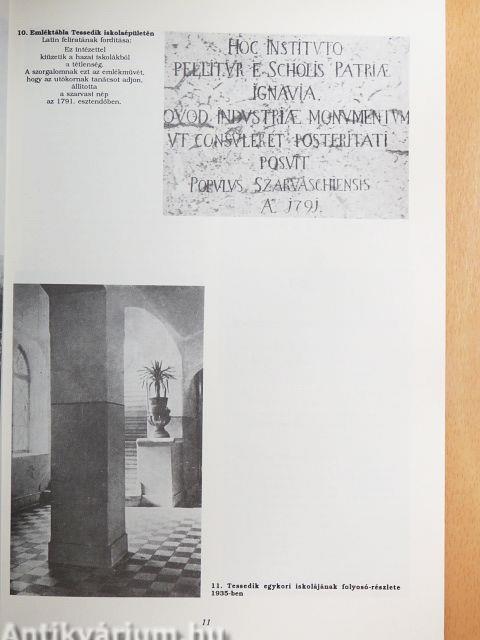 10. Emléktábla Tessedik iskolaépületén
Latin feliratának fordítása:
Ez intézettel
kiűzetik a hazai iskolákból
a tétlenség.
A szorgalomnak ezt az emlékművét,
hogy az utókornak tanácsot adjon,
állította
a szarvasi nép
az 1791. esztendőben.
HOC INSTITVTO
PELLITVR E SCHOLIS PATRIÆ
IGNAVIA.
QVOD INDVSTRIÆ MONVMENTVM
VT CONSVLERET POSTERITATI
POSVIT
POPVLVS SZARVASCHIENSIS
A. 1791.
11. Tessedik egykori iskolájának folyosó-részlete
1935-ben
11
Antikvárium.hu